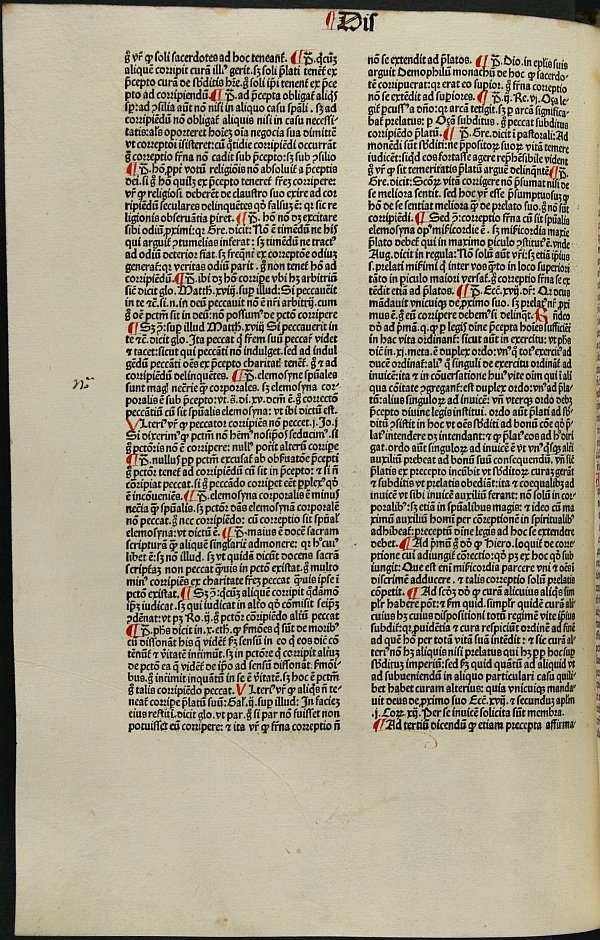 Dis
gͦ vr̄ ꝙ soli sacerdotes ad hoc teneant̄. ¶ P̄. qͥcūqꝫ
aliquē corripit curā illiꝰ gerit. sꝫ soli p̄lati tenēt̄ ex
p̄cepto curā de sb̄ditis hr̄e. gͦ soli ip̄i tenent̄ ex p̄ce
pto ad corripiendū. ¶ P̄. ad p̄cepta obligat̄ aliqͥs
sp̄: ad ꝯsilia aūt nō nisi in aliquo casu spāli. sꝫ ad
corripiēdū nō obligat̄ aliquis nisi in casu necessi-
tatis: als̄ oporteret hoīeꝫ oīa negocia sua dimittē
vt correptoi insisteret: cū qͥtidie corripiēdi occurrāt
gͦ correptio fr̄na nō cadit sub p̄cepto: sꝫ sub ꝯsilio
¶ P̄. hō. ppē votū religiōis nō absoluit̄ a p̄ceptis
dei. si gͦ hō quilꝫ ex p̄cepto teneret̄ fr̄eꝫ corripere:
vr̄ ꝙ religiosi deberēt de claustro suo exire ad cor
ripiēdū seculares delinquētes qd̄ falsuꝫ ē: qꝛ sic re
ligionis obseruātia piret. ¶ P̄. hō nō dꝫ excitare
sibi odiū ꝓximi: qꝛ Gre. dicit: Nō ē timēdū ne his
qui arguit̄ ꝯtumelias inferat: sꝫ timēdū ne tractꝰ
ad odiū deterior fiat. sꝫ freqn̄t̄ ex correptōe odiuꝫ
generat̄: qꝛ veritas odiū parit. gͦ non tenet̄ hō ad
corripiēdū. ¶ P̄. ibi dꝫ hō corripe vbi hꝫ arbitriū
sm̄ dicit glo. Matth. xviij. sup illud: Si peccauerit
in te ⁊c̄. si. n. in deū peccauit nō ē nr̄i arbitrij. cum
gͦ oē pctm̄ sit in deū: nō possumꝰ de pctō corripere
¶ Sꝫ ꝯ: sup illud Matth. xviij Si peccauerit in
te ⁊c̄. dicit glo. Ita peccat ꝙ frem suū peccar̄ videt
⁊ tacet: sicut qui peccāti nō indulget. sed ad indul
gēdū peccāti oēs ex p̄cepto charitat̄ tenēt̄. gͦ ⁊ ad
corripiēdū delinquētes. ¶ P̄. elemosyne spūales
sunt magꝭ nec̄rie qͣꝫ corporales. sꝫ elemosyna cor-
poralis ē sub p̄cepto: vt. s̄. di. xv. dcm̄ ē. gͦ correctō
peccātiū cū sit spūalis elemosyna: vt ibi dictū est.
Vlteriꝰ vr̄ ꝙ peccator corripiēs nō peccet. j. Jo. j
Si dixerimꝰ ꝙ pctm̄ nō hēmꝰ nosip̄os seducimꝰ. si
gͦ pctōris nō ē corripere: nullꝰ poterit alterū corripe
¶ P̄. nullus ꝓpter pctm̄ excusat̄ ab obseruatōe p̄cepti
gͦ pctōr tenet̄ ad corripiēdū cū sit in p̄cepto: ⁊ si n̄
corripiat peccat. si gͦ peccādo corripiat eēt ꝑplexꝰ qd̄
ē incōueniēs. ¶ P̄. elemosyna corporalis ē minus
nec̄ia qͣꝫ spūalis. sꝫ pctōr dās elemosynā corporalē
nō peccat. gͦ nec corripiēdo: cū correptio sit spūal̄
elemosyna: vt dictū ē. ¶ P̄. maius ē docē sacram
scripturā qͣꝫ aliquē singularit̄ admonere: qꝛ hͦ cui
libet ē: sꝫ nō illud. sꝫ vt quidā dicūt docens sacrā
scripturā non peccat qͣuis in pctō existat. gͦ multo
minꝰ corripiēs ex charitate fr̄eꝫ peccat qͣuis ipse ī
pctō existat. ¶ Sꝫ ꝯ: qͥcūqꝫ aliquē corripit qd̄āmō
ip̄ꝫ iudicat. sꝫ qui iudicat in alt̄o qd̄ cōmisit seip̄ꝫ
ꝯdēnat: vt pꝫ Ro. ij. gͦ pctōr corripiēdo alt̄ū peccat
¶ P̄. phs̄ dicit in. x. eth. ꝙ sermōes qͥ sūt de moribꝰ
cū dissonāt his q̄ vidēt̄ ẜm sensū in eo ꝙ eos dic̄ cō
tēnūt̄ ⁊ vitatē interimūt. sꝫ in pctōre qͥ corripit aliuꝫ
de pctō ea q̄ vident̄ de ip̄o ad sensū dissonāt sermōi-
bus. gͦ interimit inquātū in se ē vitatē. sꝫ hoc ē pctm̄
gͦ talis corripiēdo peccat. Vlteriꝰ vr̄ ꝙ aliqͥs n̄ te-
neat̄ corripe p̄latū suū: Gal. ij. sup illud: In facieꝫ
tius restiti. dicit glo. vt par. gͦ si par nō fuisset non
potuisset eū corripere: ⁊ ita vr̄ ꝙ fr̄na correptio n̄
nō se extendit ad p̄latos. ¶ P̄. Dio. in eplīs suis
arguit Demophilū monachū de hoc ꝙ sacerdo-
tē corripuerat: qꝛ erat eo supior. gͦ fr̄na correptio
nō se extēdit ad supiores. ¶ P̄. ij. Re. vj. Oꝫa le-
git̄ ꝑcussꝰ a dn̄o: qꝛ arcā tetigit. sꝫ ꝑ arcā significa-
bat̄ prelatus: ꝑ Oꝫā subditus. gͦ peccat subditus
corripiēdo p̄latū. ¶ P̄. Gre. dicit ī pastorali: Ad
monēdi sūt sb̄diti: ne p̄positoꝝ suoꝝ vitā temere
iudicēt: si qd̄ eos fortasse agere rep̄hēsibile vident
gͦ vr̄ ꝙ sit temeritatis p̄latū arguē delinqn̄tē ¶ P̄.
Gre. dicit: Scōꝝ vitā corrigere nō p̄sumat nisi de
se meliora sentit. sed hoc vr̄ esse p̄sumptuosuꝫ ꝙ
hō de se sentiat meliora qͣꝫ de prelato suo. gͦ nō sūt
corripiēdi. ¶ Sed ꝯ: correptio fr̄na cū sit spūalis
elemosyna opꝰ misericordie ē. sꝫ misericordia maxie
p̄lato debet̄ qui in maximo piculo ꝯstituit̄ ē. vnde
Aug. dicit in regula: Nō solū aūt vr̄i: sꝫ etiā ip̄ius
s. prelati miserimī qͥ inter vos qͣꝫto in loco superiori
tāto in piculo maiori versat̄. gͦ correptio fr̄na ex se ex-
tēdit etiā ad platos. ¶ P̄. Ecc̄i. xvij. dr̄: Qꝛ deus
mandauit vnicuiqꝫ de ꝓximo suo. sꝫ prelatꝰ nr̄ ꝓxi
mus ē. gͦ eū corripere debemꝰ si delinqͥt. Rn̄deo
dd̄ ad p̄mā. q. ꝙ ꝑ legis diuine p̄cepta hoīes sufficiēt̄
in hac vita ordinant̄. sicut aūt in exercitu: vt phs̄
dic̄ in. xj. meta. ē duplex ordo: vnꝰ qͥ totꝰ exercitꝰ ad
ducē ordinat̄: aliꝰ qͥ singuli de exercitu ordinat̄ ad
inuicē: ita ⁊ in cōuersatione huiꝰ vite oīm qui ī ali
qua cōitate ꝯgregant̄: est duplex ordo: vnꝰ ad p̄la-
tū: alius singuloꝝ ad inuicē: vn̄ vterqꝫ ordo debꝫ
p̄cepto diuine legis institui. ordo aūt p̄lati ad sb̄-
ditū ꝯsistit in hoc vt oēs sb̄diti ad bonū cōe qd̄ p̄-
lat̄ intendere dꝫ intendant: ⁊ ꝙ p̄latꝰ eos ad hͦ diri
gat. ordo aūt singuloꝝ ad inuicē ē vt vnꝰqͥsqꝫ alij
auxiliū prebeat ad bonū suū consequendū. vn̄ sic̄
p̄latis ex precepto incūbit vt sb̄ditoꝝ curaꝫ gerāt
⁊ subditis vt prelatis obediāt: ita ⁊ coequalibꝫ ad
inuicē vt sibi inuicē auxiliū ferant: nō solū in cor-
poralibꝰ: sꝫ etiā in spūalibus magis: ⁊ ideo cū ma
ximū auxiliū homī per correptionē in spiritualibꝰ
adhibeat̄: preceptū diuine legis ad hoc se extendere
debet. ¶ Ad p̄mū gͦ dd̄ ꝙ Hiero. loquit̄ de corre-
ptione cui adiungit̄ correctio: qd̄ pꝫ ex hoc qd̄ sub
iungit: Que est enī misericordia parcere vni ⁊ oēs ī
discrimē adducere. ⁊ talis correptio solū prelatis
cōpetit. ¶ Ad scd̄ꝫ dd̄ ꝙ curā alicuius aliqͥs sim
plr̄ habere pōt: ⁊ ẜm quid. simplr̄ quidē curā ali-
cuius hꝫ cuius dispositioni totū regimē vite ip̄ius
subdit̄: qꝛ prouidētia ⁊ cura respiciūt ordinē ad finē
ad que hō per totā vitā suā intēdit: ⁊ sic curā al-
teriꝰ nō hꝫ aliquis nisi prelatus qui hꝫ ꝓp̄ hoc sup
sb̄ditus imperiū: sed ẜm quid quātū ad aliquid vt
ad subueniendū in aliquo particulari casu quili-
bet habet curam alterius: quia vnicuiqꝫ manda-
uit deus de ꝓximo suo Ecc̄i. xvij. ⁊ secunduꝫ apl̄m
j. Corꝝ. xij. Per se inuicē solicita sūt membra.
¶ Ad tertiū dicendū ꝙ etiam precepta affirma